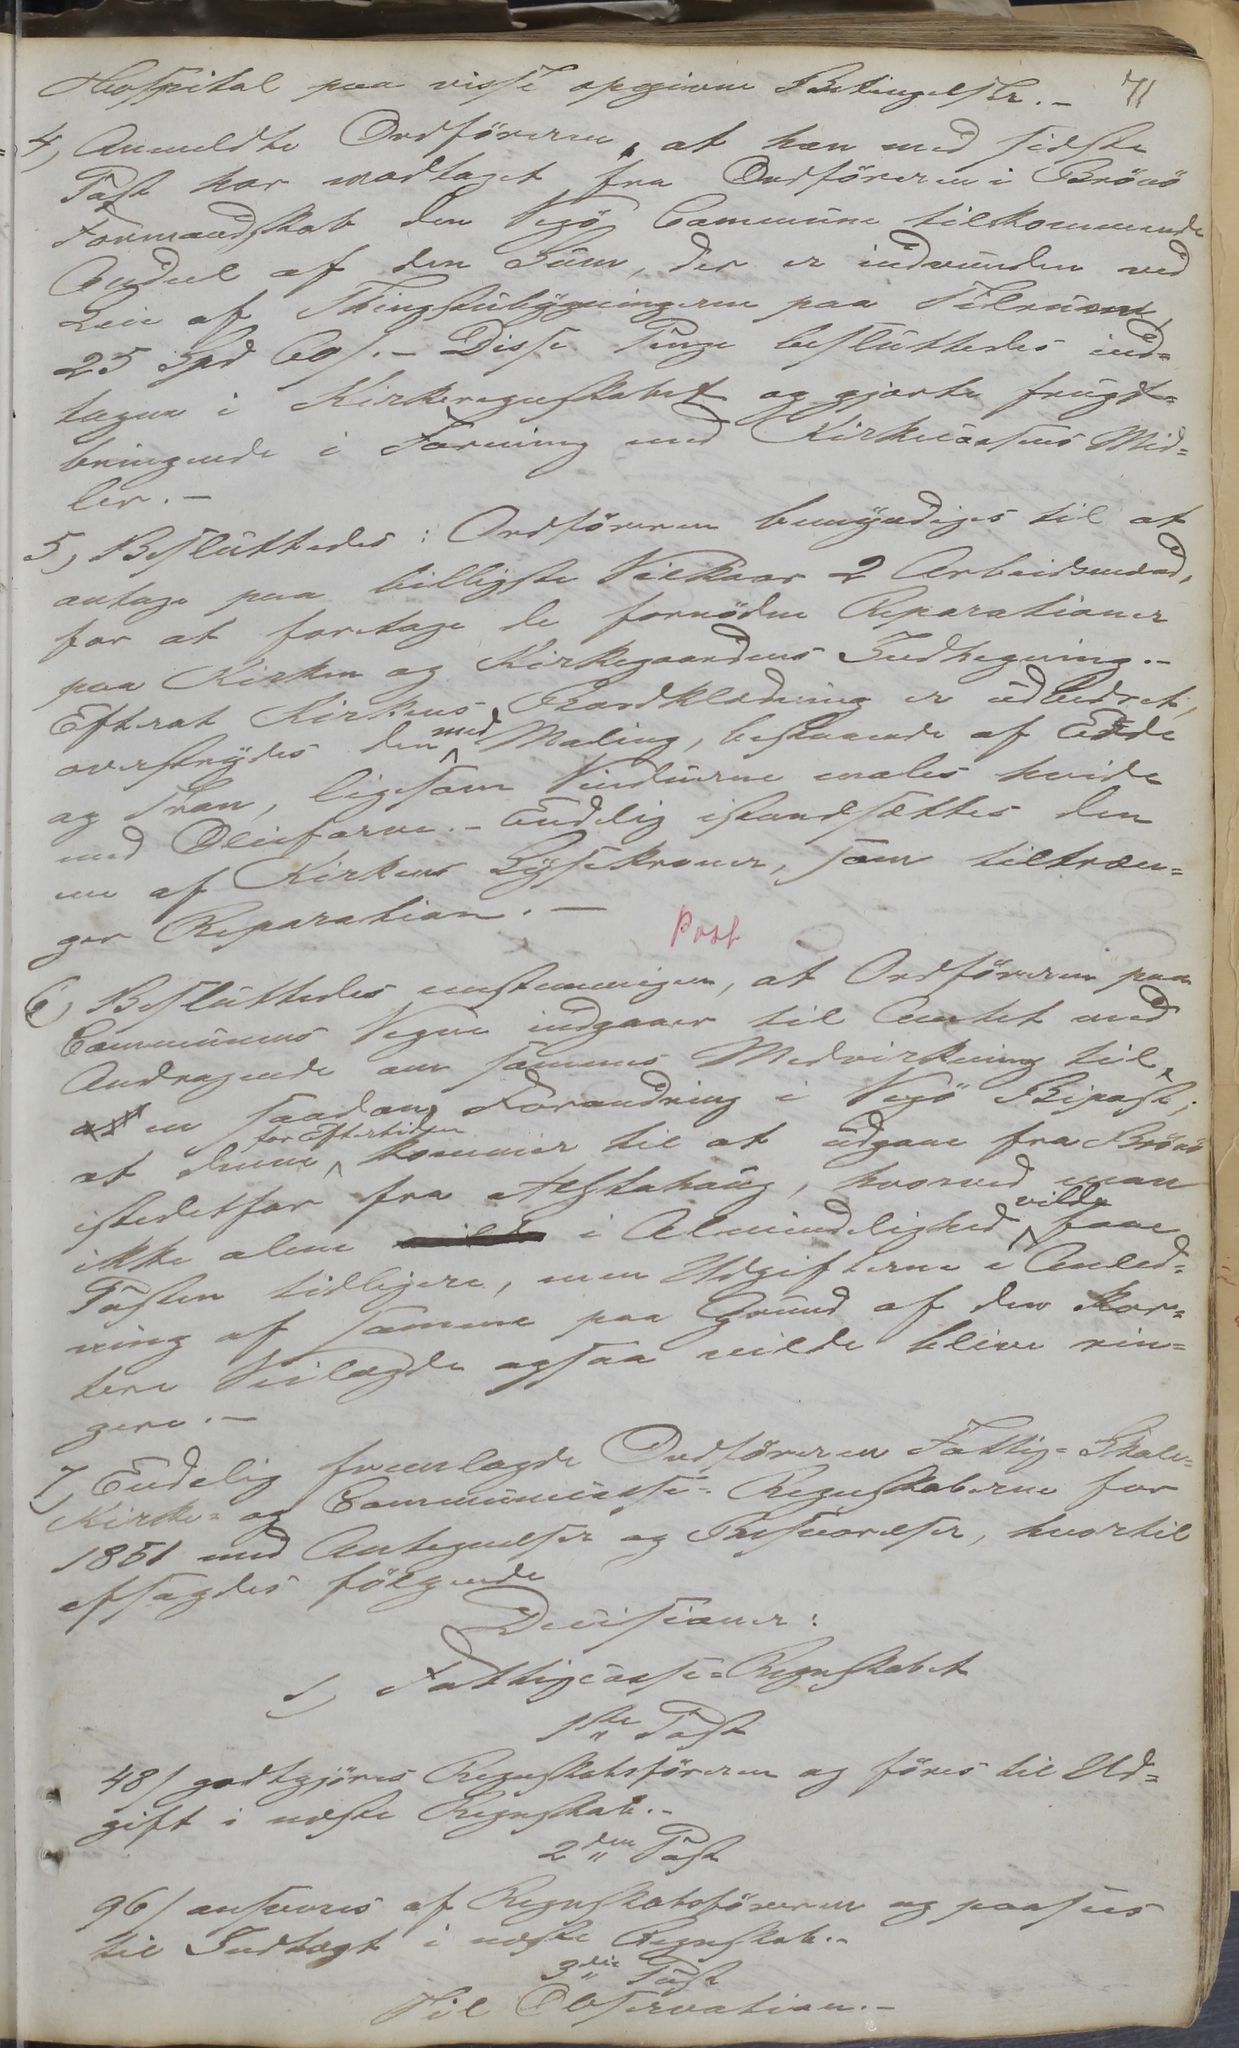 71
Hospital paa visse opgivne Betingelser.-
4, Anmeldte Ordföreren, at han med sidste
Post har modtaget fra Ordföreren i Brönö
Formandskab den Vegö Commune tilkommende
Andeel af den Sum, der er indvunden ved
Leie af Thingstubygningerne paa Tilrem,
25 Spd 60 s.- Disse Penge besluttedes ind-
tagne i Kirkeregnskabet og gjorte frugt-
bringende i Forening med Kirkecassens Mid-
ler.-
5, Besluttedes: Ordföreren bemyndiges til at
antage paa billigste Vilkaar 2 Arbeidsmænd,
for at foretage de fornödne Reparationer
paa Kirken og Kirkegaardens Indhegning.-
Efterat Kirkens Bordklædning er udbedret,
overstryges den med Maling, bestaaende af
og Tran, ligesom Vinduerne males hvide
med Oliefarve.- Endelig istandsættes den
ene af Kirkens Lysekroner, som tiltræn-
ger Reparation.-
Post
6, Besluttedes eenstemmigen, at Ordföreren paa
Communens Vegne indgaaer til Amtet med
Andragende om sammes Medvirkning til
at en saadan Forandring i Vegö Bipost,
at denne for Eftertiden kommer til at udgaae fra Brönö
istedetfor fra Alstahoug, hvorved man
ikke alene i Almindelighed vilde faae
Posten tidligere, men Udgifterne i Anled-
ning af samme paa Grund af den kor-
tere Veilægde ogsaa vilde blive rin-
gere.-
7, Endelig fremlagde Ordföreren Fattig- Skole-
Kirke- og Communecasse- Regnskaberne for
1851 med Antegnelser og Besvarelser, hvortil
afsagdes fölgende
Decisioner:
1, Fattigcasse-Regnskabet
1ste Post
48 s godtgjöres Regnskabsföreren og föres til Ud-
gift i næste Regnskab.-
2den Post
96 s ansvares af Regnskabsföreren og passeres
til Indtægt i næste Regnskab.-
3die Post
Til Observation.-